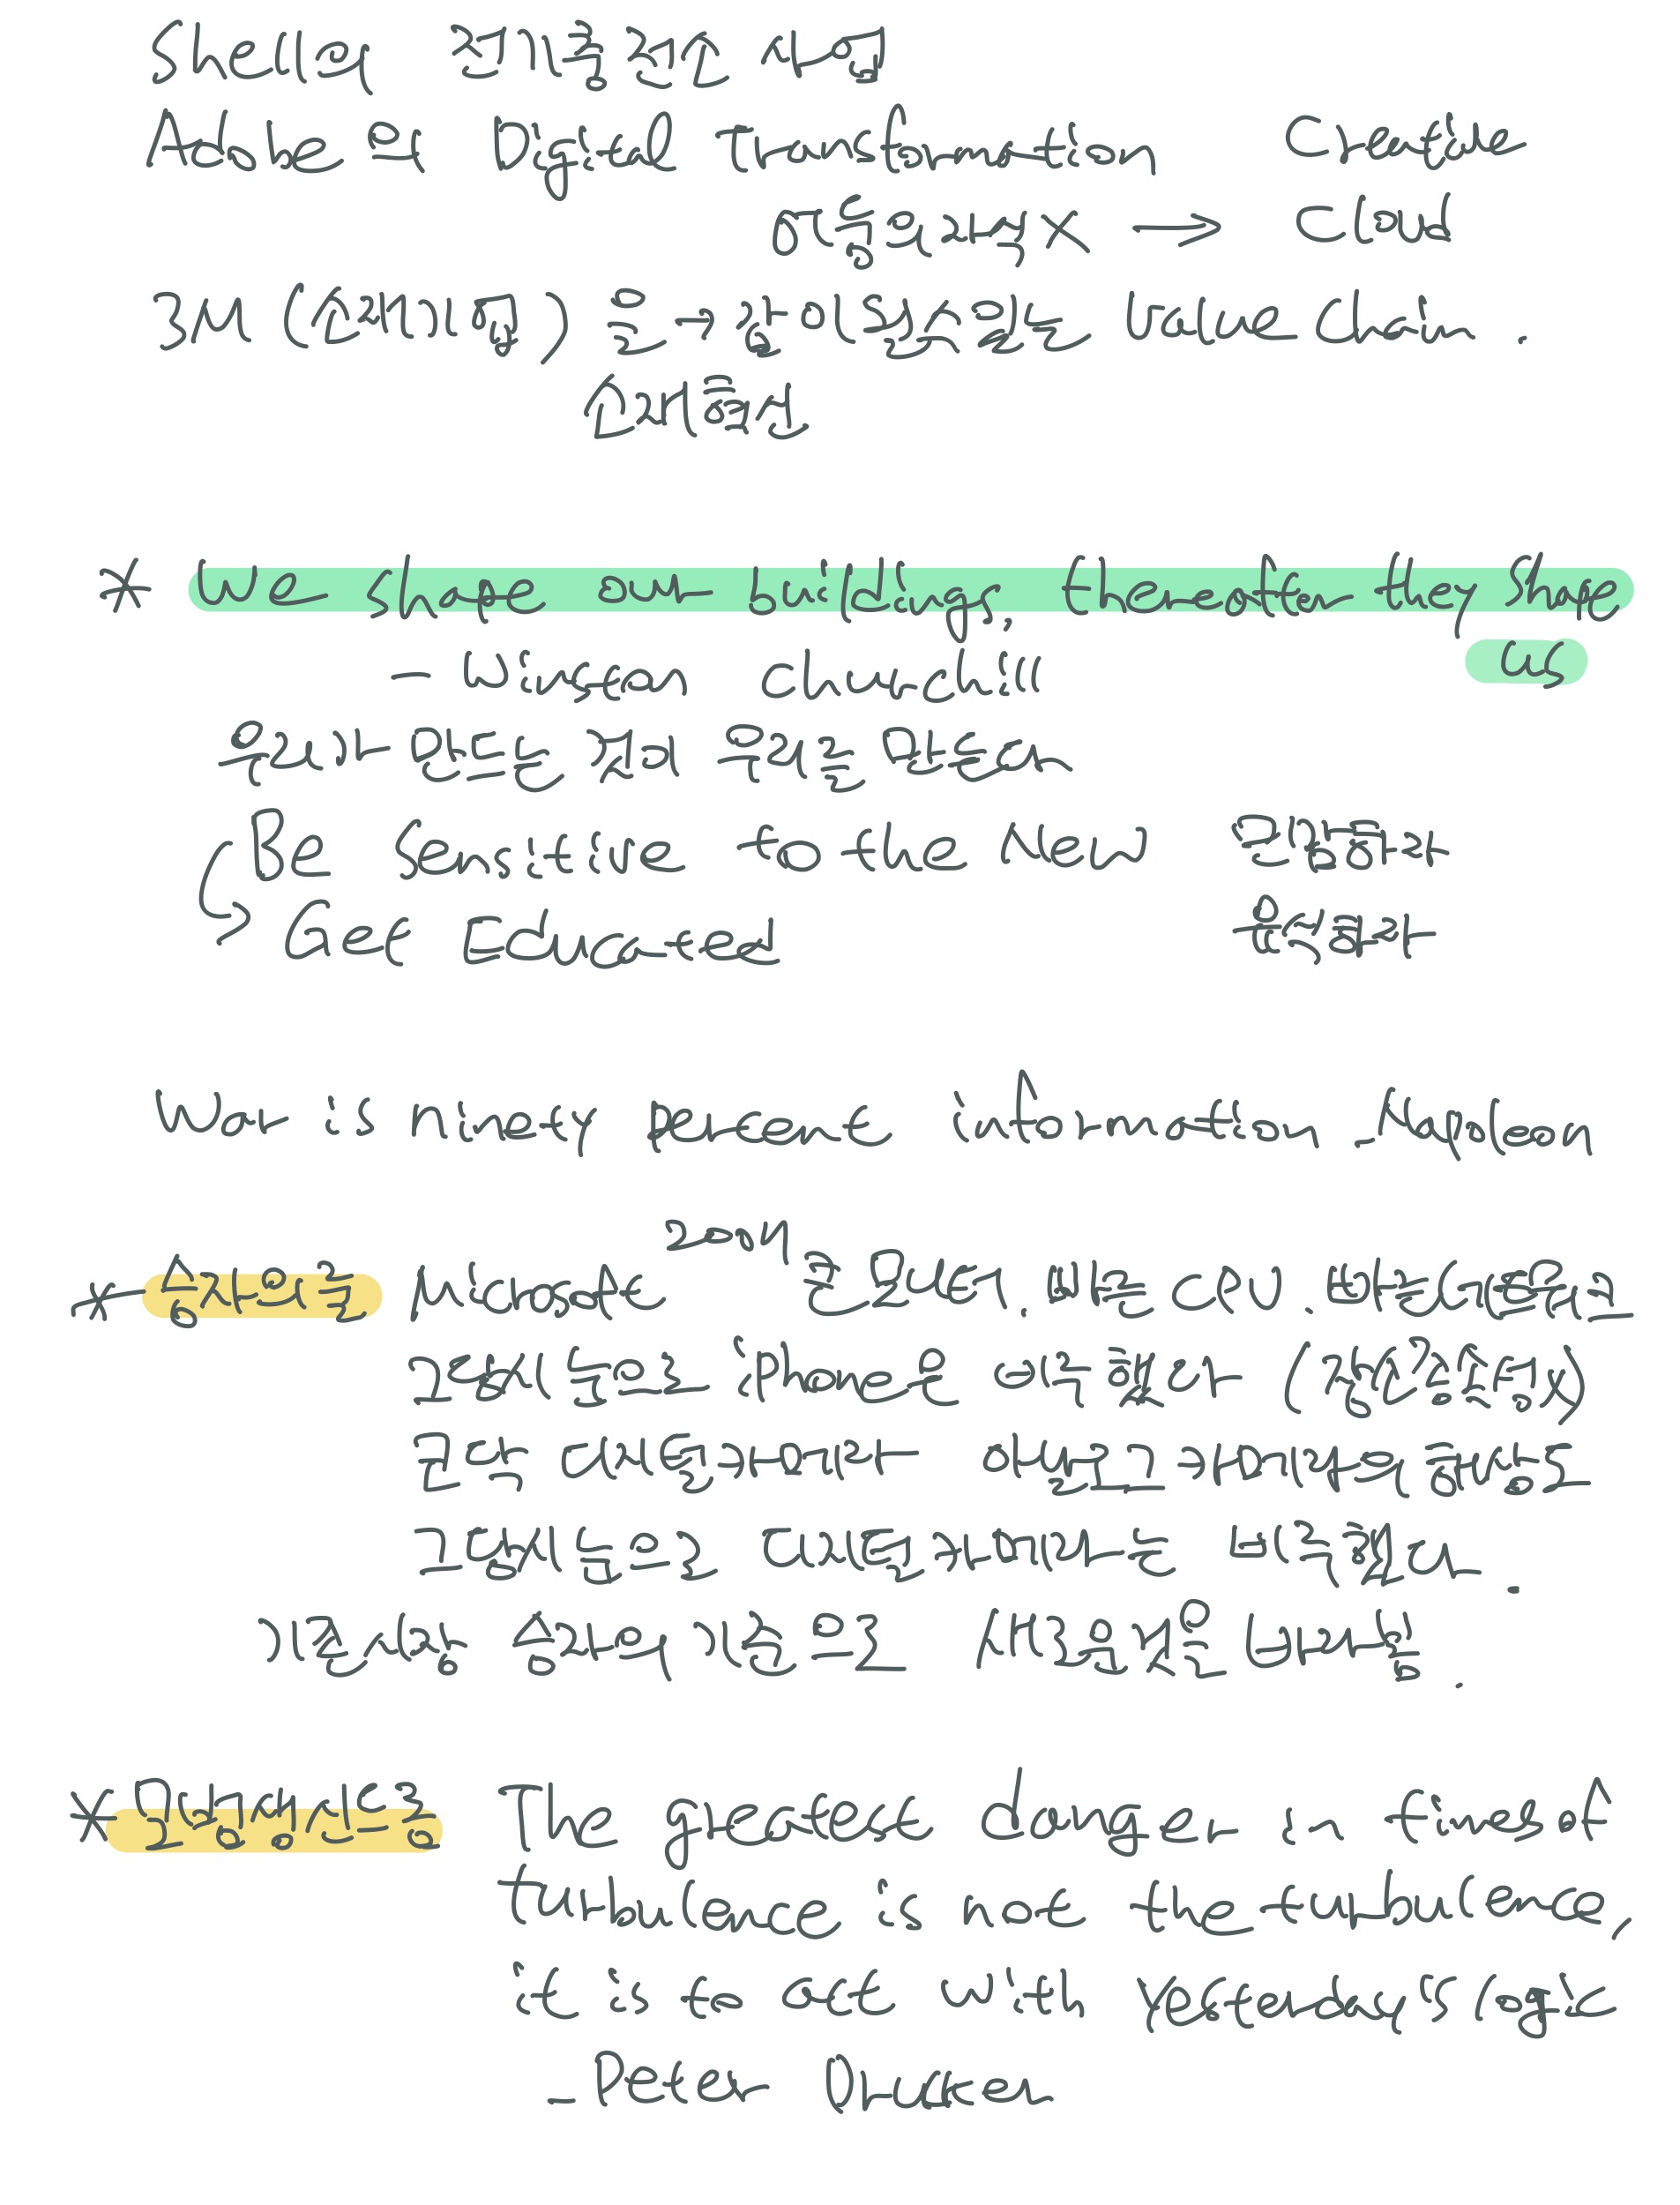 Shell의 전기충전소 사업
Adobe의 Digital Transformation Creative
어플의라벨X → Cloud
3M (소재기업) 은 → 끊이있을수없는 Value Chain.
소재혁신
* We shape our buildings, thereafter they shape
us
- Winston Churchill
우리가 만드는 것이 우리를 만든다
Be Sensitive to the New 민감하라
Get Educated 유식하라
War is ninety percent information - Napoleon
* 승자의오류 Microsoft 200개 큰모니터. 빠른 CPU.
그당시눈으로 iPhone은 아주 (X)
코닥 디지털카메라 아날로그카메라의 해상도
그당시눈으로 디지털카메라는 비루했다.
기존시장 승자의 기준으로 새로운것을 바라봄.
* The greatest danger in times of
turbulence is not the turbulence,
it is to act with Yesterday's logic
- Peter Drucker